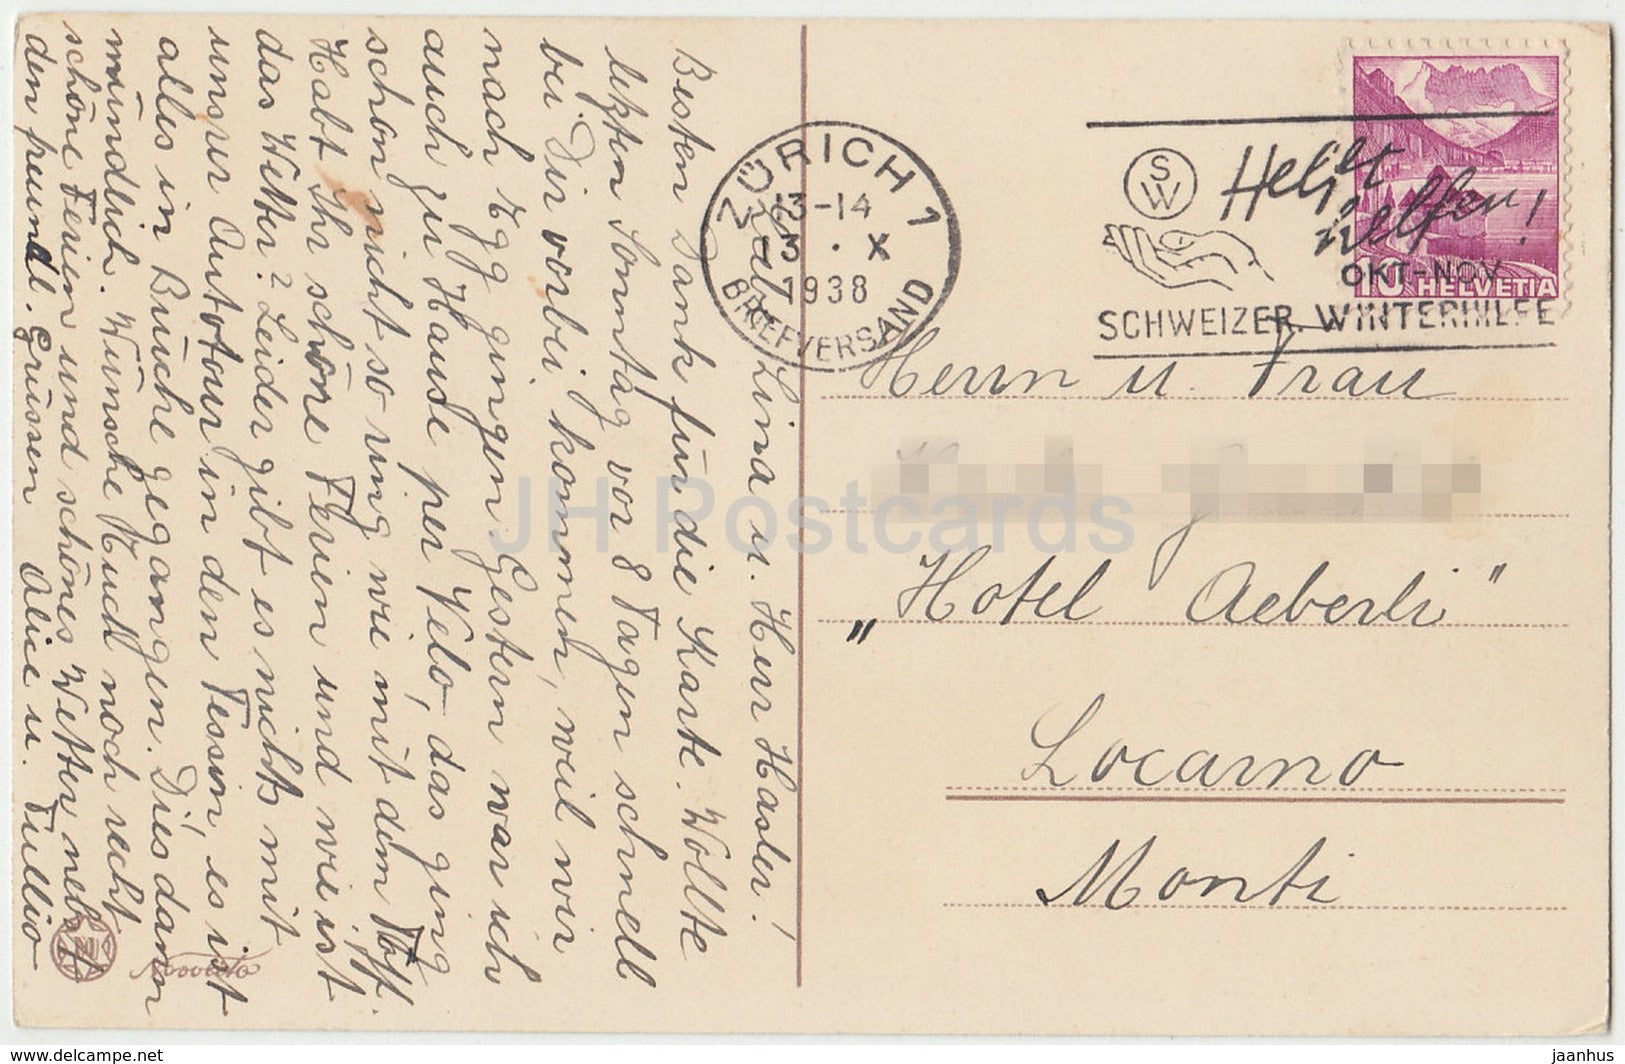 Liebe Lina u. Herr Hasler!
Besten Dank für die Karte. Wollte
letzten Sonntag vor 8 Tagen schnell
bei Dir vorbei kommen, weil wir
nach Egg gingen. Gestern war ich
auch zu Hause per Velo, das ging
schon nicht so ring wie mit dem Töff.
Habt Ihr schöne Ferien und wie ist
das Wetter? Leider gibt es nichts mit
unsrer Autotour in den Tessin, es ist
alles in Brüche gegangen. Dies dann
mündlich. Wünsche Euch noch recht
schöne Ferien und schönes Wetter nebst
den freundl. Grüssen Alice u. Tullio
Novovista
ZÜRICH 1
13-14
3. X
1938
BRIEFVERSAND
SW
Helft
helfen!
OKT-NOV
SCHWEIZER WINTERHILFE
10 HELVETIA
Herrn u. Frau
„Hotel Aeberli"
Locarno
Monti
JH Postcards
delcampe.net
jaanhus